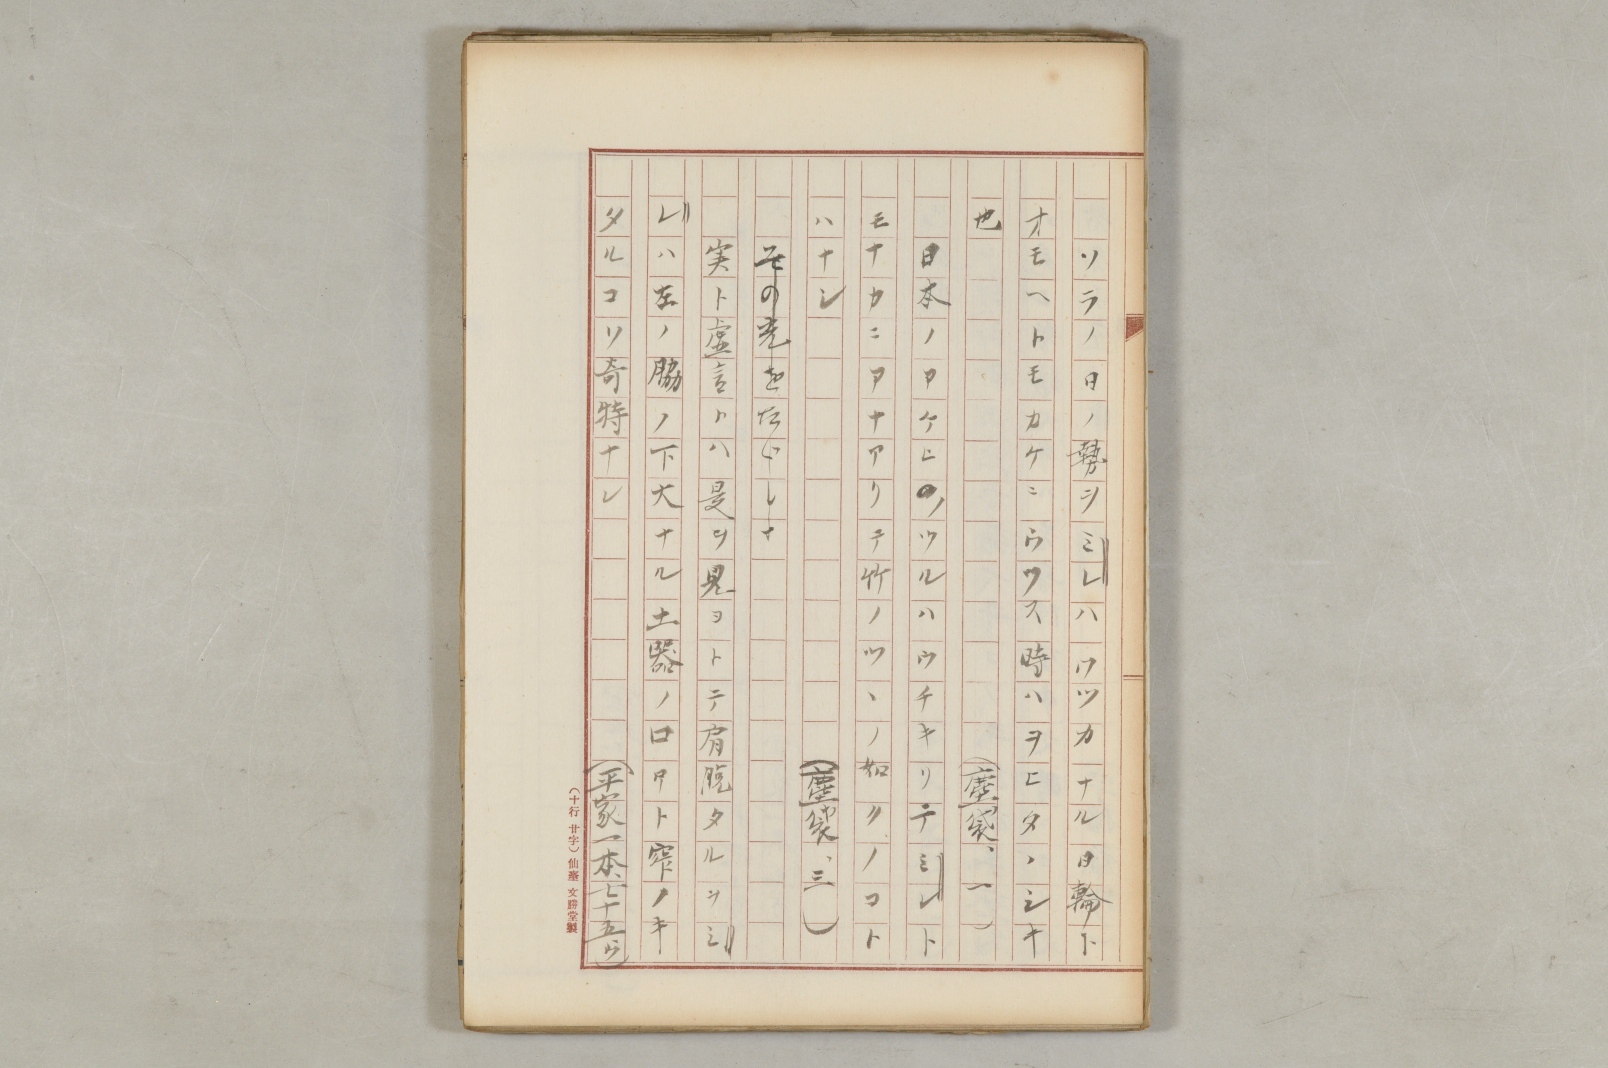 ソラノ日ノ勢ヲミレハワツカナル日輪ト
オモヘトモカケニウツス時ハヲヒタヽシキ
也　（塵袋、一）
日本ノアケヒノツルハウチキリテミレト
モナカニアナアリテ竹ノツヽノ如クノコト
ハナシ　（塵袋、三）
実ト虚言トハ是ヲ見ヨトテ肩脱タルヲミ
レハ左ノ脇ノ下大ナル土器ノ口ヤト窄ノキ
タルコソ奇特ナレ　（平家一本、七十五ウ）
（十行 廿字）仙臺 文勝堂製